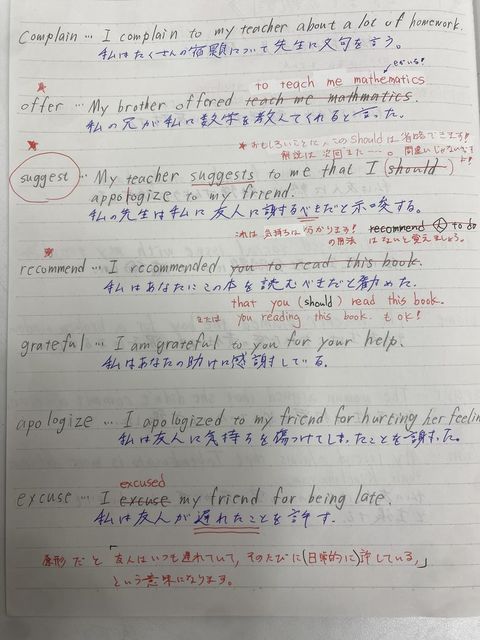 complain … I complain to my teacher about a lot of homework.
私はたくさんの宿題について先生に文句を言う。
to teach me mathematics
offer … My brother offered teach me mathmatics.
私の兄が私に数学を教えてくれると言った。
*おもしろいことに、このshouldは省略できます!
解説は次回また…。間違いじゃないですよ!
suggest … My teacher suggests to me that I (should)
appologize to my friend.
私の先生は私に友人に謝するべきだと示唆する。
これは気持ちは分かります! recommend 人 to do
の用法はないと覚えましょう。
recommend … I recommended you to read this book.
私はあなたにこの本を読むべきだと勧めた。
that you (should) read this book.
または you reading this book. もOK!
grateful … I am grateful to you for your help.
私はあなたの助けに感謝している。
apologize … I apologized to my friend for hurting her feelin
私は友人に気持ちを傷つけてしまったことを謝った。
excused
excuse … I excuse my friend for being late.
私は友人が遅れたことを許す。
原形だと「友人はいつも遅れていて、そのたびに(日常的に)許している」
という意味になります。